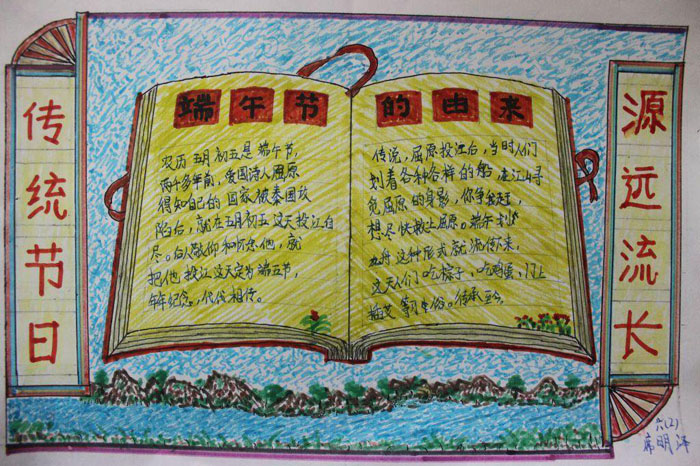 传统节日
端午节的由来
农历五月初五是端午节,
两千多年前,爱国诗人屈原
得知自己的国家被秦国攻
陷后,就在五月初五这天投江自
尽。后人敬仰和怀念他,就
把他投江这天定为端五节,
年年纪念,代代相传。
传说,屈原投江后,当时人们
划着各种各样的船在江中寻
觅屈原的身影,你争我赶,
想尽快救上屈原。端午
舟这种形式就流传下来,
这天人们吃粽子,吃鸡蛋,门上
插艾等习俗。传承至今。
源远流长
六(2)
席明洋